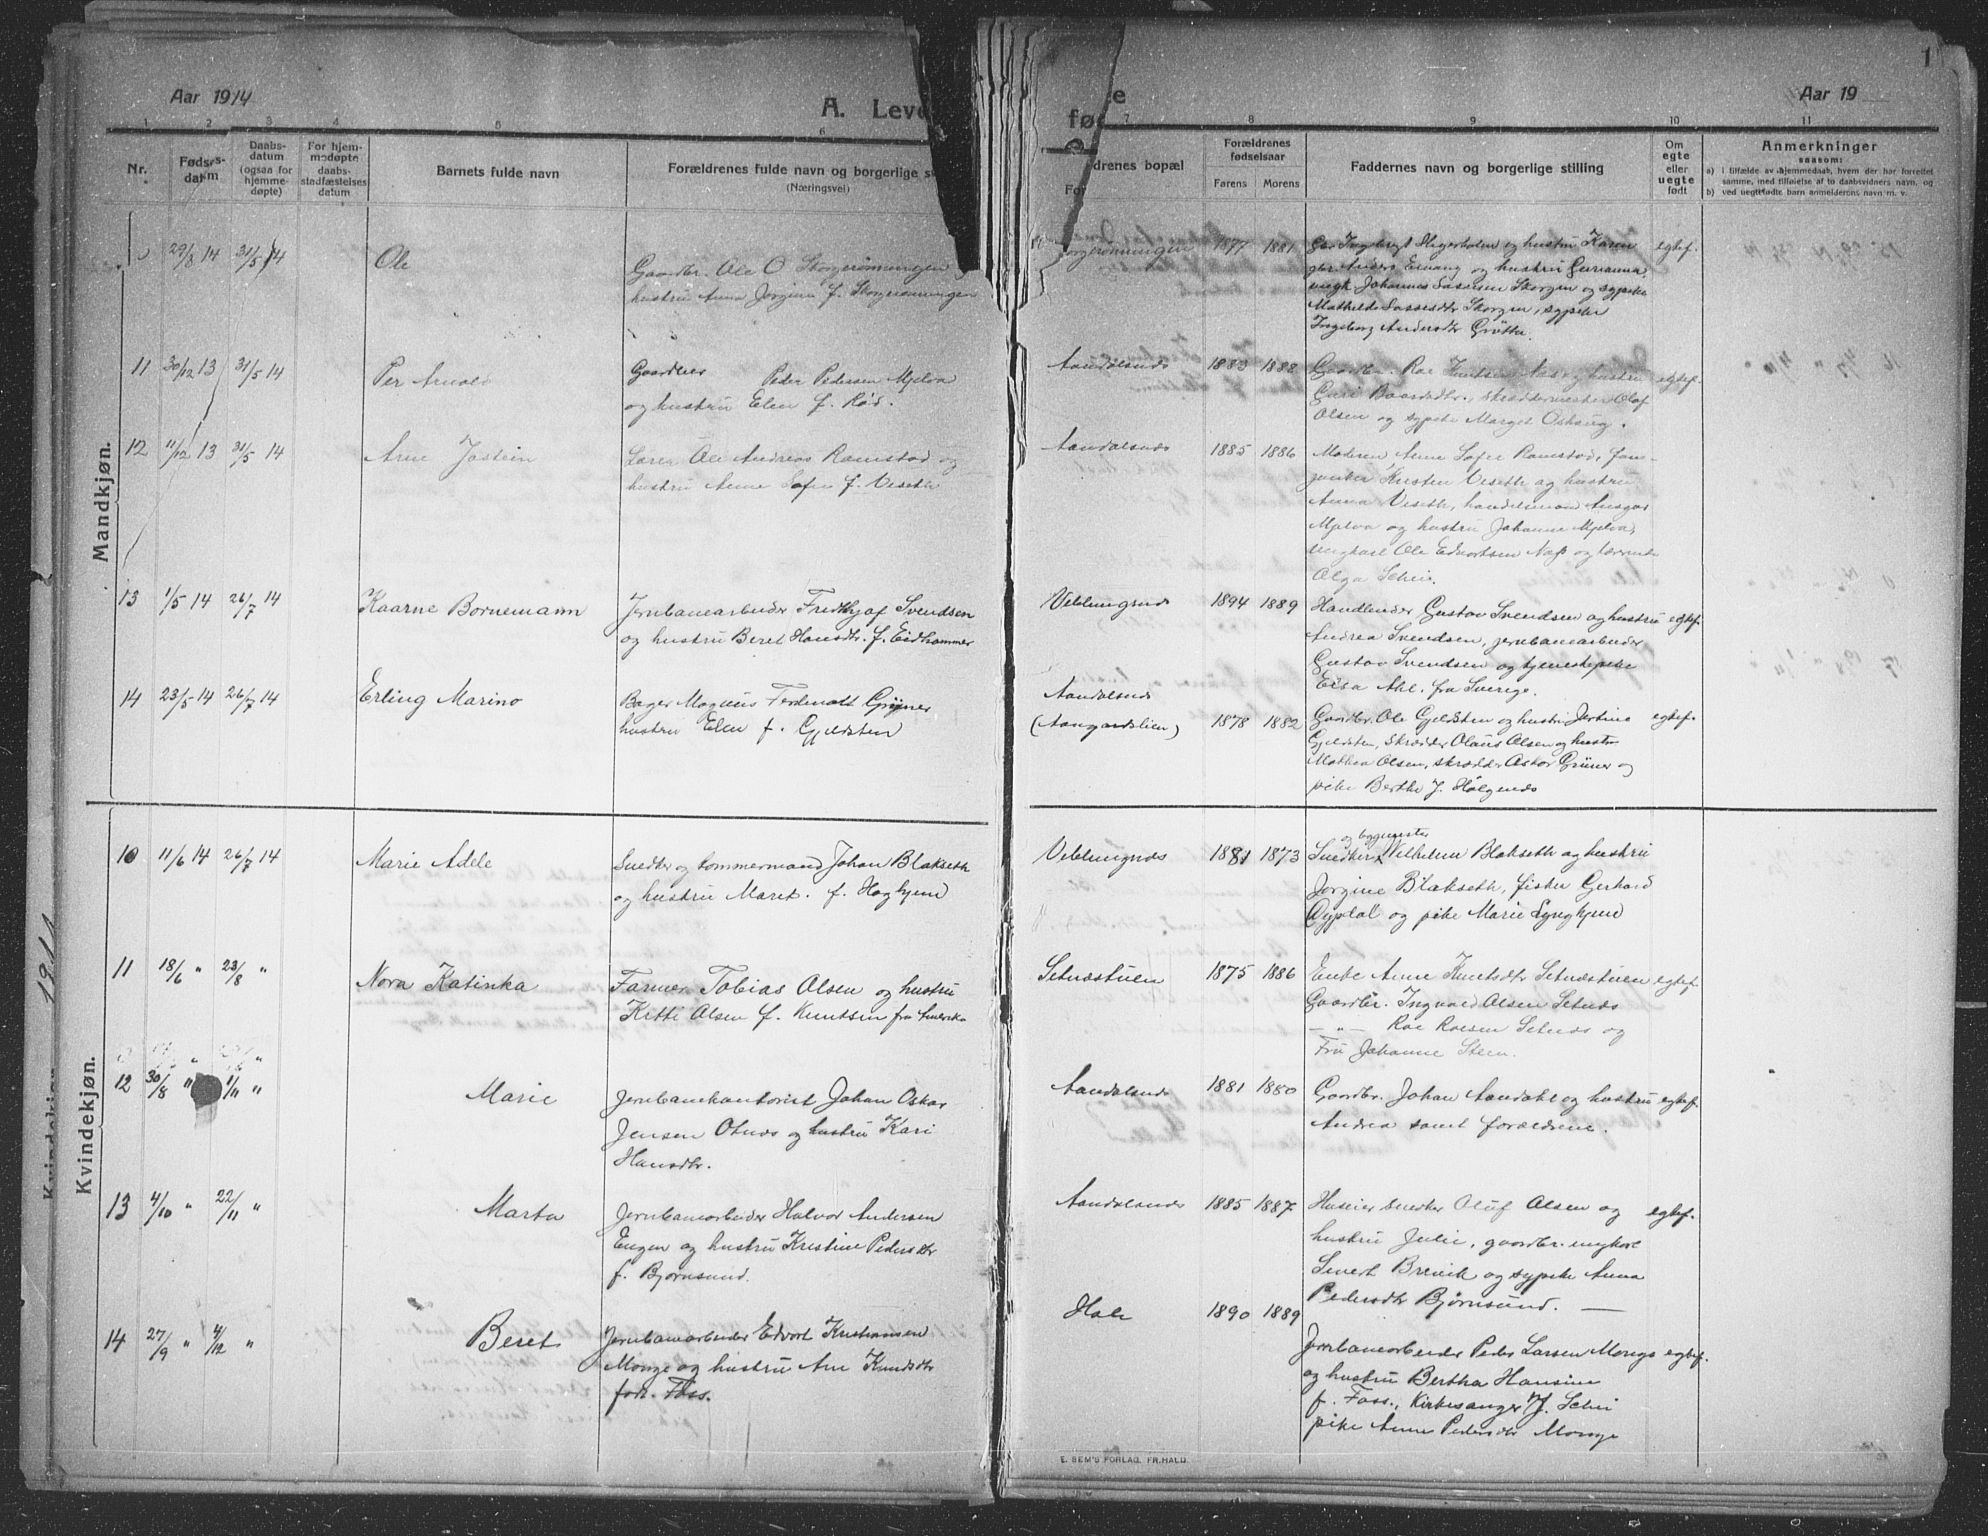 Aar 1914
A. Leve
te
fø
e
Aar 19
1
1 2 3 4 5 6 7 8 9 10 11
Nr.
Daabs-
datum
(ogsaa for
hjemme-
døpte)
For hjem-
medøpte
daabs-
stadfæstelses
datum
Barnets fulde navn
Forældrenes fulde navn og borgerlige s
(Næringsvei)
drenes bopæl
Forældrenes
fødselsaar
Farens Morens
Faddernes navn og borgerlige stilling
Om
egte
eller
uegte
født
Anmerkninger
saasom:
a) i tilfælde av hjemmedaab, hvem der har forrettet
samme, med tilføielse af to daabsvidners navn, og
b) ved uegtefødte barn anmelderens navn m. v.
Mandkjøn.
29/3 14 31/5 14 Ole
Gaardbr. Ole O
hustru Anna Jørgine f.
1877 1881
og hustru Karen
og hustru
Johannes og sypike
Mathilde sypike
Ingeborg Andersdtr
egtef.
11 30/12 13 31/5 14 Per Arnold
Gaardbr Peder Pedersen Mjelva
og hustru Elen f. Rød.
Aandalsnæs 1883 1888
Gaardbr. Roe Knutsen Næs og hustru
Guri Baardsdtr., skræddermester Olaf
Olsen og sypike Marget
egtef.
12 11/12 13 31/5 14 Arne Jostein
Lærer Ole Andreas Ramstad og
hustru Anne Sofie f. Viseth
Aandalsnæs 1885 1886
Moderen Anne Sofie Ramstad,
Viseth og hustru
Anna Viseth, handelsmand Ansgar
Mjelva og hustru Johanne Mjelva,
ungkarl Ole Edvartsen Næs og lærerinde
Olga Schei.
13 1/5 14 26/7 14 Kaarne Bornemann
Jernbanearbeider Fredhjof Svendsen
og hustru Beret Hansdtr. f. Eidhammer
Veblungsnæs 1894 1889
Handlender Gustav Svendsen og hustru
Andrea Svendsen, jernbanearbeider
Gustav Svendsen og tjenestepike
Elsa Ahl. fra Sverige.
egtef.
14 23/5 14 26/7 14 Erling Marino
Bager Magnus Ferdenatt Gryner
hustru Elen f. Gjeldsten
Aandalsnæs
(Aangardslien) 1878 1882
Gaardbr. Ole Gjeldsten og hustru Jertine
Gjeldsten, skrædder Olaus Olsen og hustru
Mathea Olsen, skrædder Oskar Grüner og
pike Berthe J. Holgenæs
egtef.
Kvindekjøn.
10 11/6 14 26/7 14 Marie Adele
Snedker og tømmermand Johan Blakseth
og hustru Maret. f. Hagkjenn
Veblungnæs 1881 1873
og bygmester
Snedker Vilhelm Blakseth og hustru
Jørgine Blakseth, fisker Gerhard
og pike Marie Lyngkjenn
11 18/6 " 23/8 " Nora Katinka
Farmer Tobias Olsen og hustru
Kitti Olsen f. Knutsen fra Amerika
Setnæstuen 1875 1886
Enke Anne Knutsdtr Setnæstuen
Gaardbr. Ingvald Olsen Setnæs
— " — Roe Roesen Setnæs og
Fru Johanne Steen.
egtef.
12 30/8 " 1/11 " Marie
Jernbanekontorist Johan Oskar
Jensen Otnæs og hustru Kari
Hansdtr.
Aandalsnæs 1881 1880
Gaardbr. Johan Aandahl og hustru
Andrea samt forældrene.
egtef.
13 4/10 " 22/11 " Marta
Jernbanearbeider Halvor Andersen
Engen og hustru Kristine Pedersdtr
f. Bjørnsund.
Aandalsnæs 1885 1887
Huseier snedker Oluf Olsen og
hustru Julie, gaardbr. ungkarl
Sivert Brevik og sypike Anna
Pedersdtr Bjørnsund. —
egtef.
14 27/9 " 4/12 " Beret
Jernbanearbeider Edvart Kristiansen
Monge og hustru Ane Knudsdtr
født. Foss.
Hole 1890 1889
Jernbanearbeider Peder Larsen Monge
og hustru Bertha Hansine
f. Foss, kirkesanger J. Schei
pike Anne Pedersdtr Monge
egtef.
E. SEM'S FORLAG, FR.HALD.